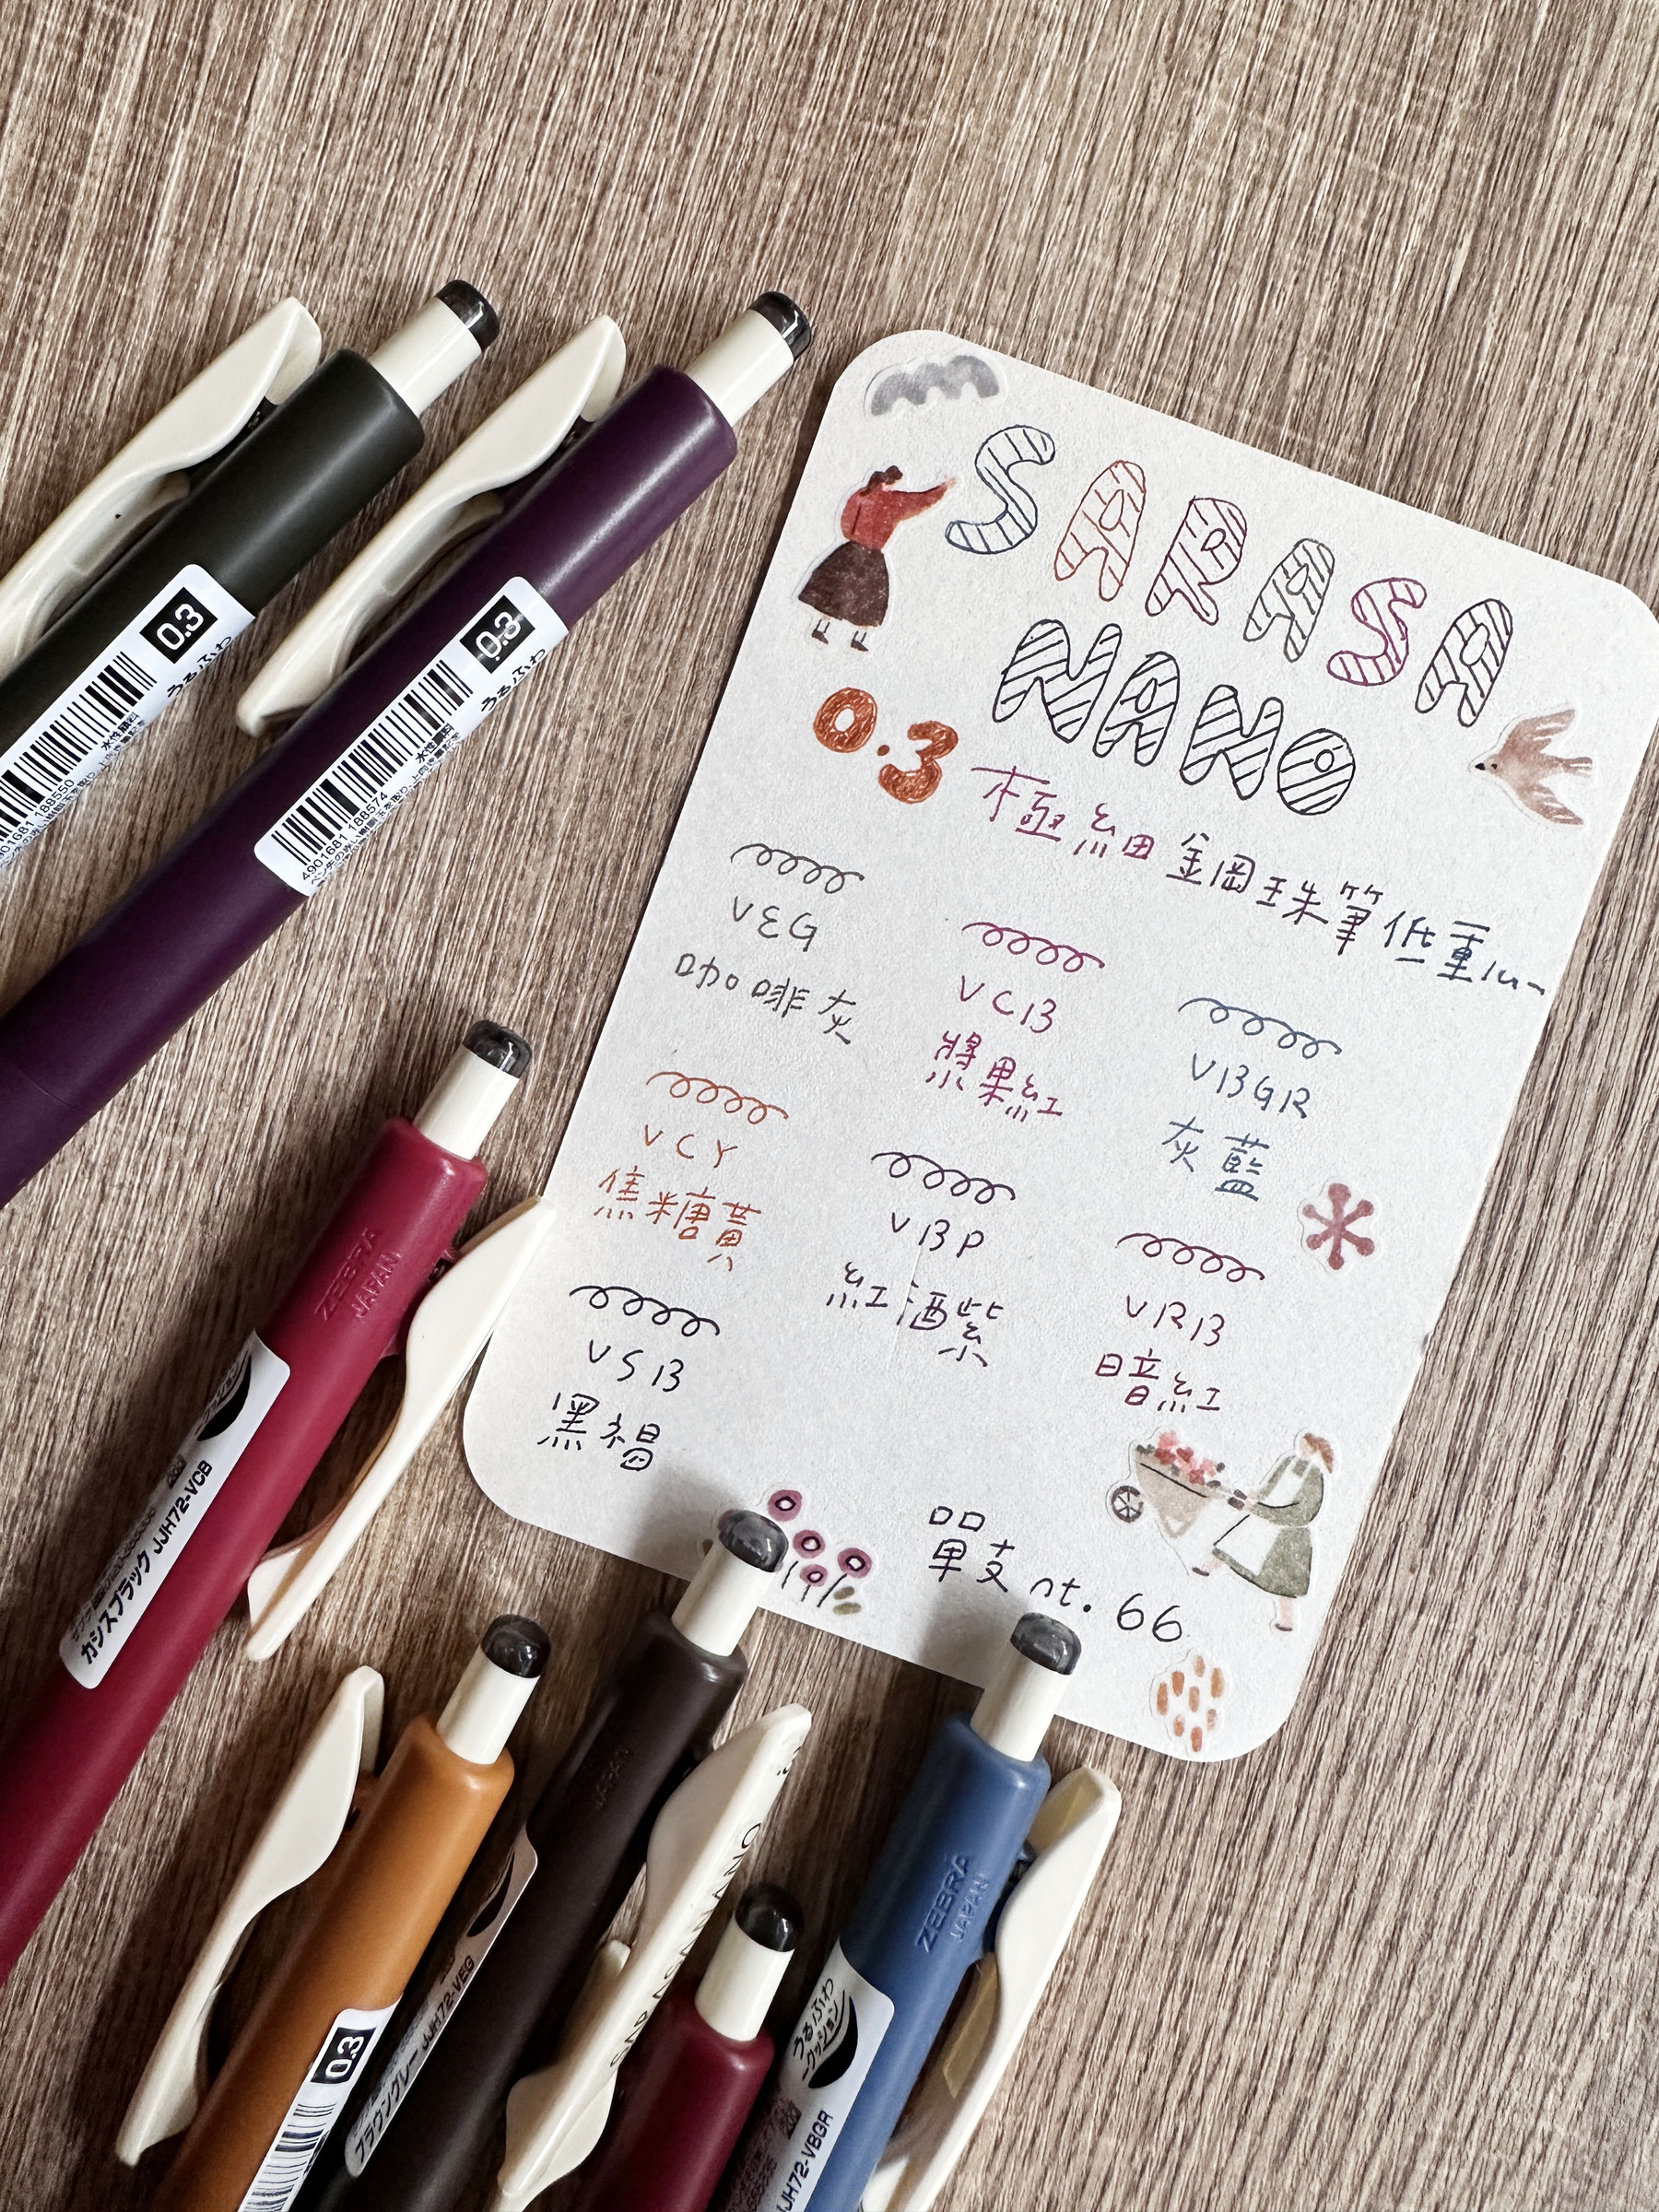 SARASA
NANO
0.3
極細鋼珠筆低重心
VEG
咖啡灰
VCB
漿果紅
VBGR
灰藍
VCY
焦糖黃
VBP
紅酒紫
VRB
暗紅
VSB
黑褐
單支 nt. 66
0.3
うるふわ
水性顔料
0.3
うるふわ
水性顔料
4901681 188574
ZEBRA
JAPAN
カシスブラック JJH72-VCB
0.3
JAPAN
ブラウングレー JJH72-VEG
SARASA NANO
ZEBRA
JAPAN
うるふわ
クッション
JJH72-VBGR